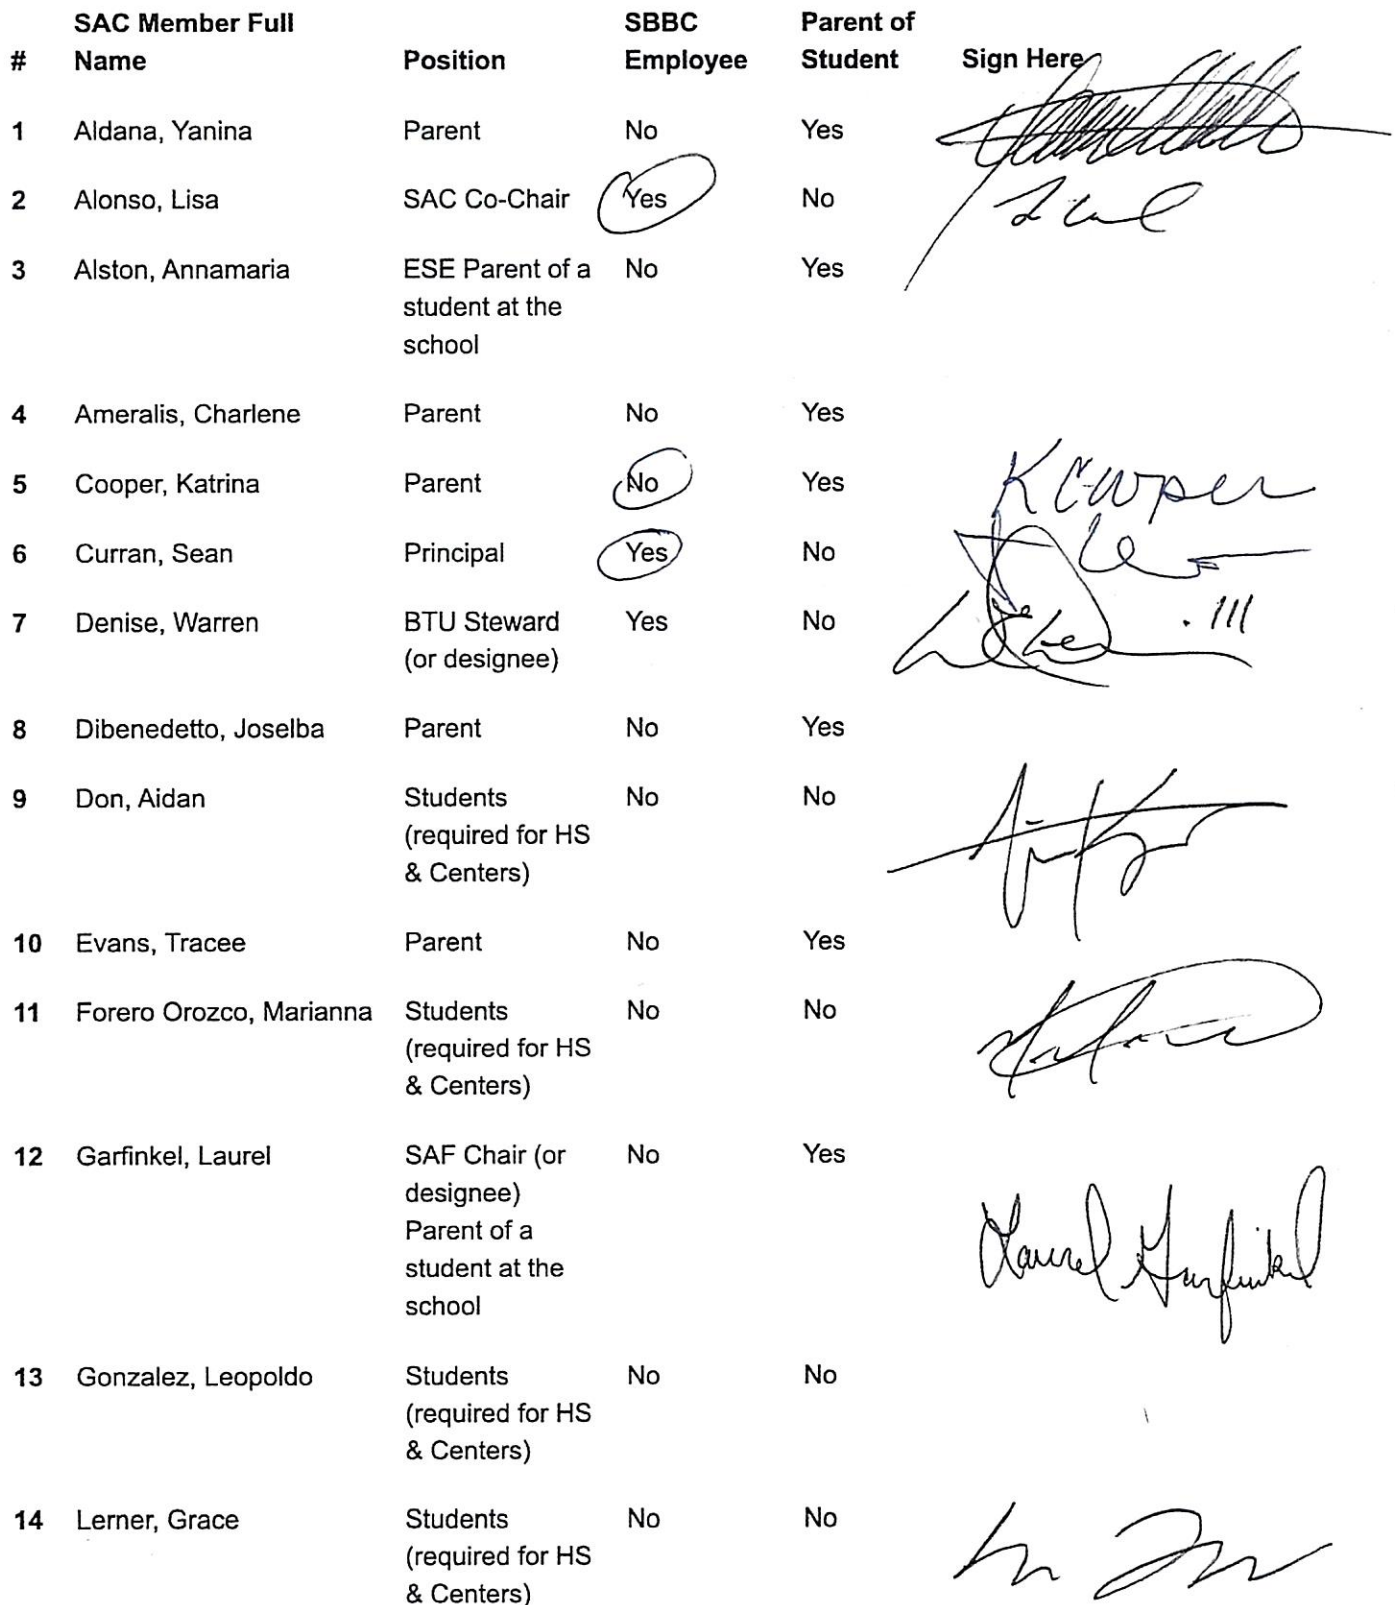 SAC Member Full SBBC Parent of
# Name Position Employee Student Sign Here
1 Aldana, Yanina Parent No Yes
2 Alonso, Lisa SAC Co-Chair Yes No
3 Alston, Annamaria ESE Parent of a No Yes
student at the
school
4 Ameralis, Charlene Parent No Yes
5 Cooper, Katrina Parent No Yes K Cooper
6 Curran, Sean Principal Yes No
7 Denise, Warren BTU Steward Yes No
(or designee)
8 Dibenedetto, Joselba Parent No Yes
9 Don, Aidan Students No No
(required for HS
& Centers)
10 Evans, Tracee Parent No Yes
11 Forero Orozco, Marianna Students No No
(required for HS
& Centers)
12 Garfinkel, Laurel SAF Chair (or No Yes
designee)
Parent of a
student at the
school
Laurel Garfinkel
13 Gonzalez, Leopoldo Students No No
(required for HS
& Centers)
14 Lerner, Grace Students No No
(required for HS
& Centers)